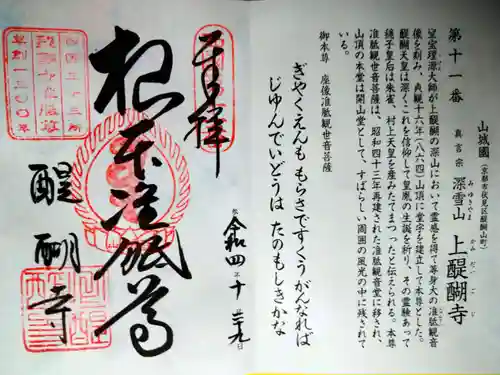 第十一番
山城國
(京都市伏見区醍醐山町)
真言宗 深雪山 上醍醐寺
みゆきやま かみだいごじ
聖宝理源大師が上醍醐の深山において霊感を得て等身大の准胝観音
像を刻み、貞観十六年(八六四)山頂に堂宇を建立して本尊とした。
醍醐天皇は深くこれを信仰して皇胤の生誕を祈り、その霊験あって
穏子皇后は朱雀、村上天皇を産みたてまつったと伝えられる。本尊
准胝観世音菩薩は、昭和四十三年再建された准胝観音堂に移され、
山頂の本堂は開山堂として、すばらしい周囲の風光の中に残されて
いる。
御本尊 座像准胝観世音菩薩
ぎやくえんも もらさですくう がんなれば
じゆんでいどうは たのもしきかな
奉拝
根本准胝尊
醍醐寺
令和四年十月廿九日
西国三十三所
草創一三〇〇年